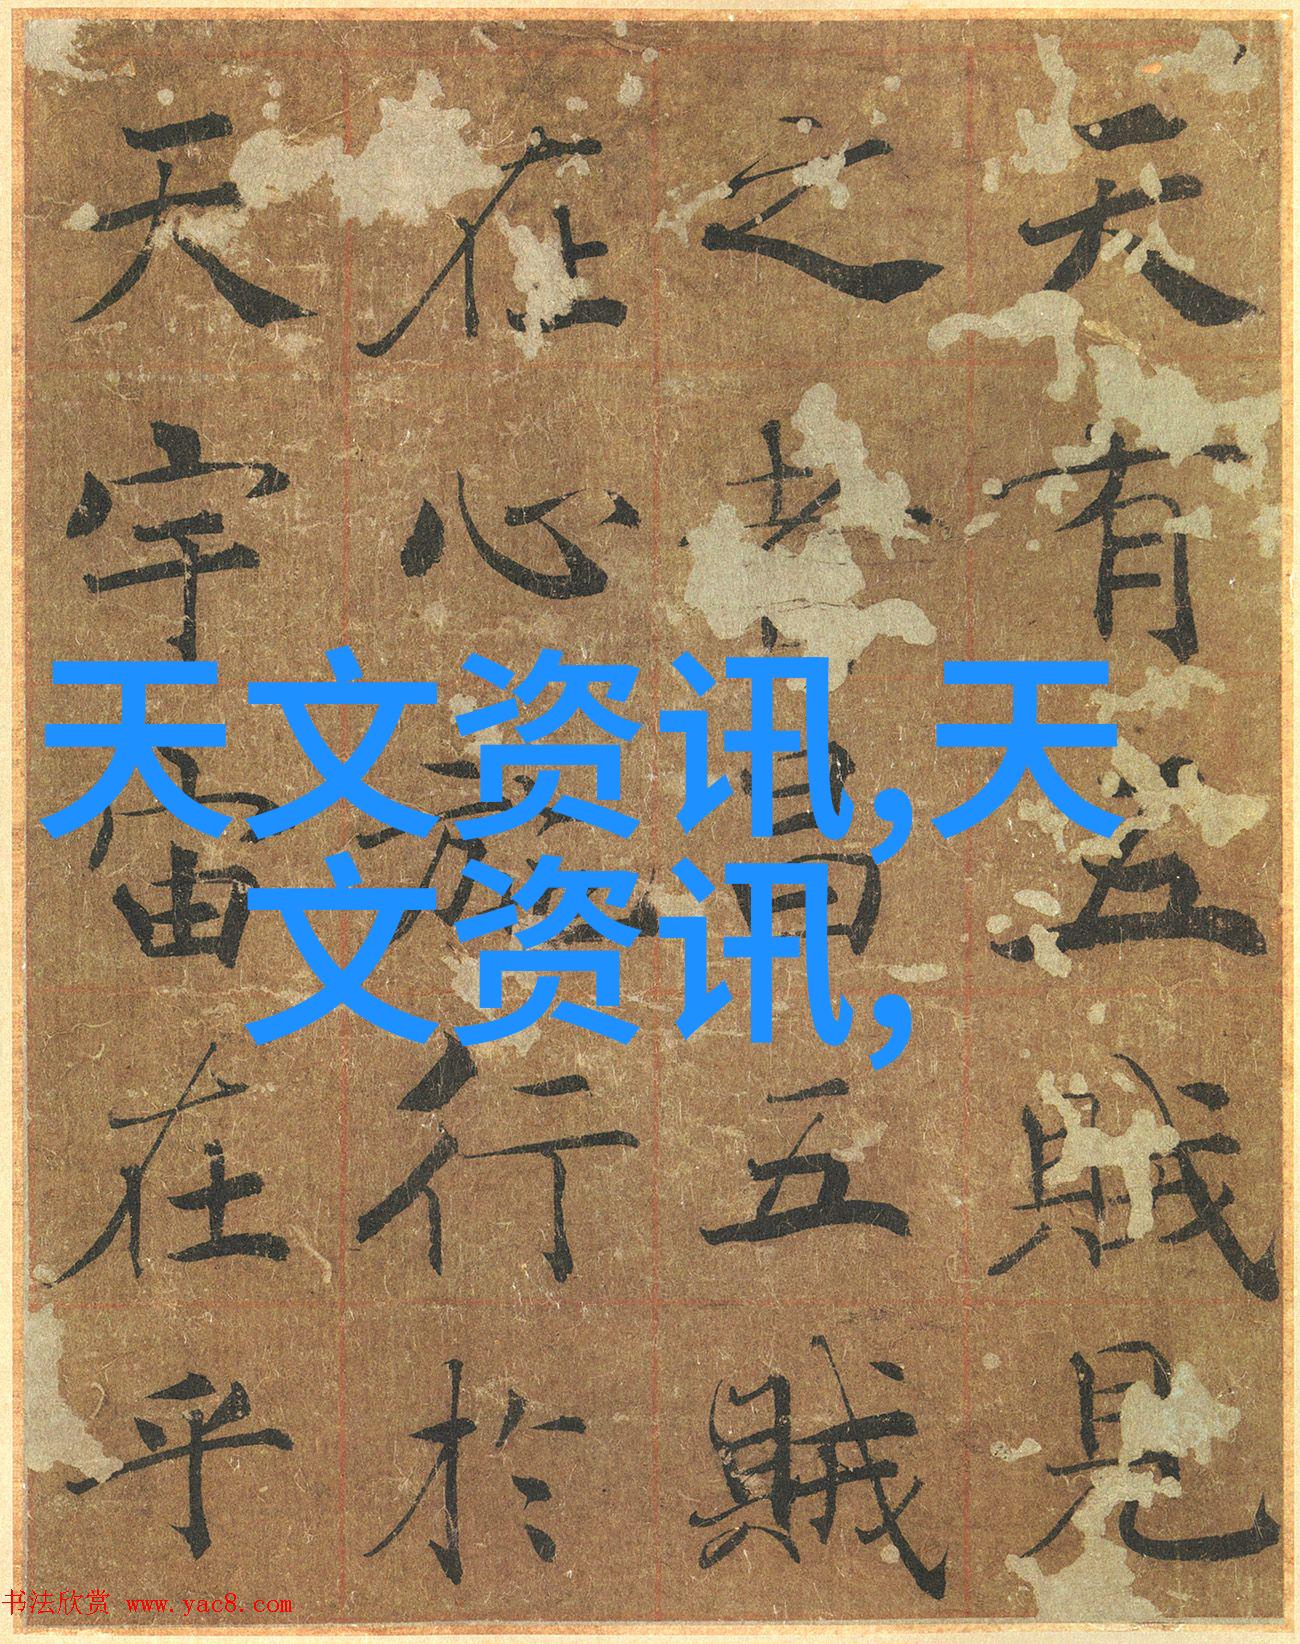 天有五賊見
之者昌五賊
在心施行於
天宇宙在乎
天文资讯,天
文资讯,
书法欣赏 www.yac8.com